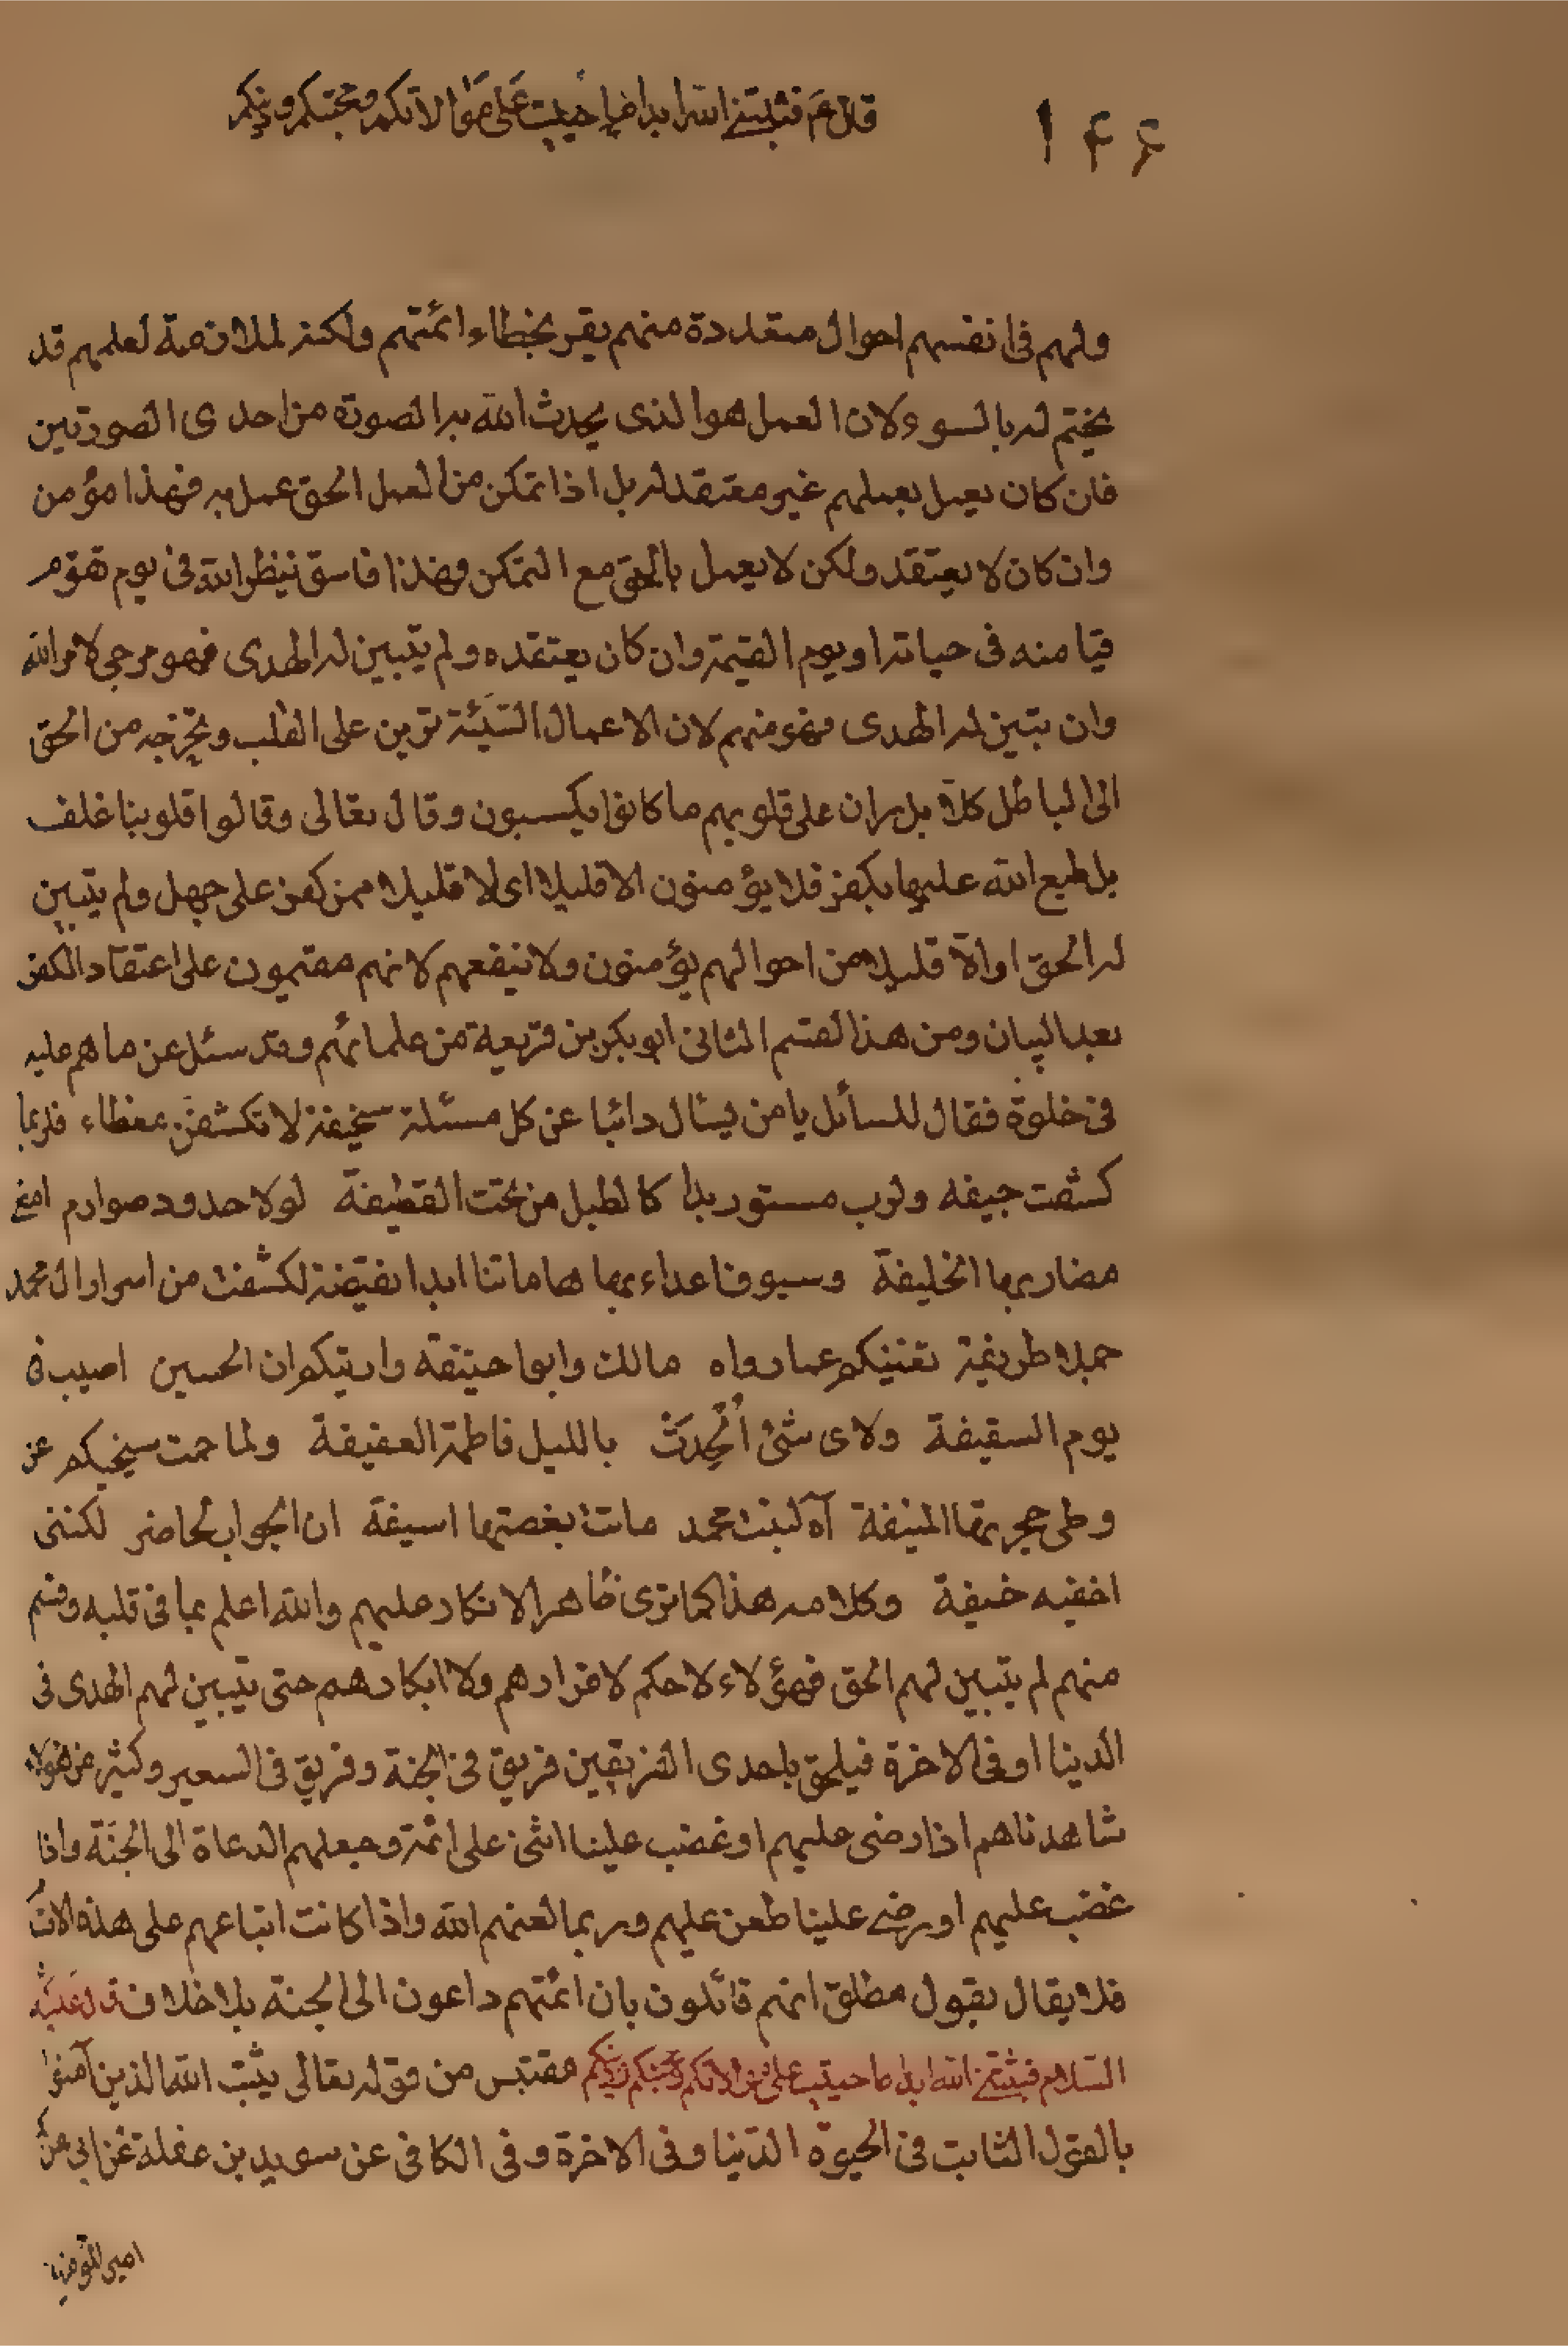 قال ع م فثبتني الله ابدا ما حييت على موالاتكم ومحبتكم ودينكم
ولهم في انفسهم احوال متعددة منهم يقر بخطاء ائمتهم ولكنه لملازمة لعلمهم قد
يختم له بالسوء لان العمل هو الذي يحدث الله به الصورة من احدى الصورتين
فان كان يعمل بعملهم غير معتقد له بل اذا تمكن من العمل الحق عمل به فهذا مؤمن
وان كان لا يعتقد ولكن لا يعمل بالحق مع التمكن فهذا فاسق ينظر الله في يوم تقوم
قيامته في حياته او يوم القيمة وان كان يعتقده ولم يتبين له الهدى فهو مرجى لامر الله
وان تبين له الهدى فهو منهم لان الاعمال السَيّئة ترين على القلب وتخرجه من الحق
الى الباطل كلا بل ران على قلوبهم ما كانوا يكسبون وقال تعالى وقالوا قلوبنا غلف
بل طبع الله عليها بكفرهم فلا يؤمنون الا قليلا اي الا قليلا ممن كفر على جهل ولم يتبين
له الحق او الّا قليلا من احوالهم يؤمنون ولا ينفعهم لانهم مقيمون على اعتقاد الكفر
بعد البيان ومن هذا القسم الثاني ابو بكر بن قريعة من علمائهم وقد سئل عن ما هم عليه
في خلوة فقال للسائل يا من يسأل دائبا عن كل مسئلة سخيفة لا تكشفنّ مغطاء فلربما
كشفت جيفه ولرب مستور بدا كالطبل من تحت القطيفة لولا حدود صوارم امضى
مضاربها الخليفة وسيوف اعداء بها هاماتنا ابدا نقيفة لكشفت من اسرار ال محمد
جملا طريفة تغنيكم عما رواه مالك وابوا حنيفة واريتكم ان الحسين اصيب في
يوم السقيفة ولاى شئ أُلْحِدَتْ بالليل فاطمة العفيفة ولما حمت شيخيكم عن
وطى حجرتها المنيفة آه لبنت محمد ماتت بغصتها اسيفة ان الجواب لحاضر لكننى
اخفيه خيفة وكلامه هذا كما ترى ظاهر الانكار عليهم والله اعلم بما في قلبه وقسم
منهم لم يتبين لهم الحق فهؤلاء لا حكم لاقرارهم ولا انكارهم حتى يتبين لهم الهدى في
الدنيا او في الاخرة فيلحق باحدى الفريقين فريق في الجنة وفريق في السعير وكثير من هؤلاء
شاهدناهم اذا رضى عليهم او غضب علينا اثنى على ائمته وجعلهم الدعاة الى الجنّة واذا
غضب عليهم او رضى علينا طعن عليهم وربما لعنهم الله واذا كانت اتباعهم على هذه
فلا يقال بقول مطلق انهم قائلون بان ائمتهم داعون الى الجنة بلا خلاف قال عليه
السّلام فثبتني الله ابدا ما حييت على موالاتكم ومحبتكم ودينكم مقتبس من قوله تعالى يثبت الله الذين آمنوا
بالقول الثابت في الحيوة الدّنيا وفي الاخرة وفي الكافي عن سويد بن غفلة عن
امير المؤمنين